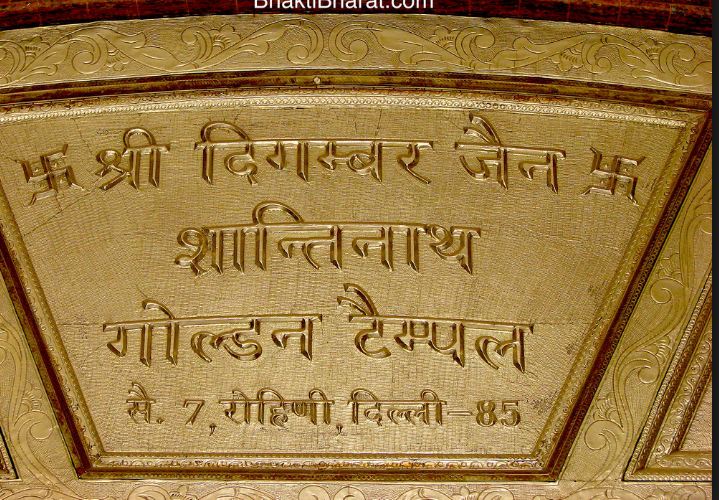 BhaktiBharat.com
卐 श्री दिगम्बर जैन 卐
शान्तिनाथ
गोल्डन टैम्पल
सै. 7, रोहिणी, दिल्ली-85